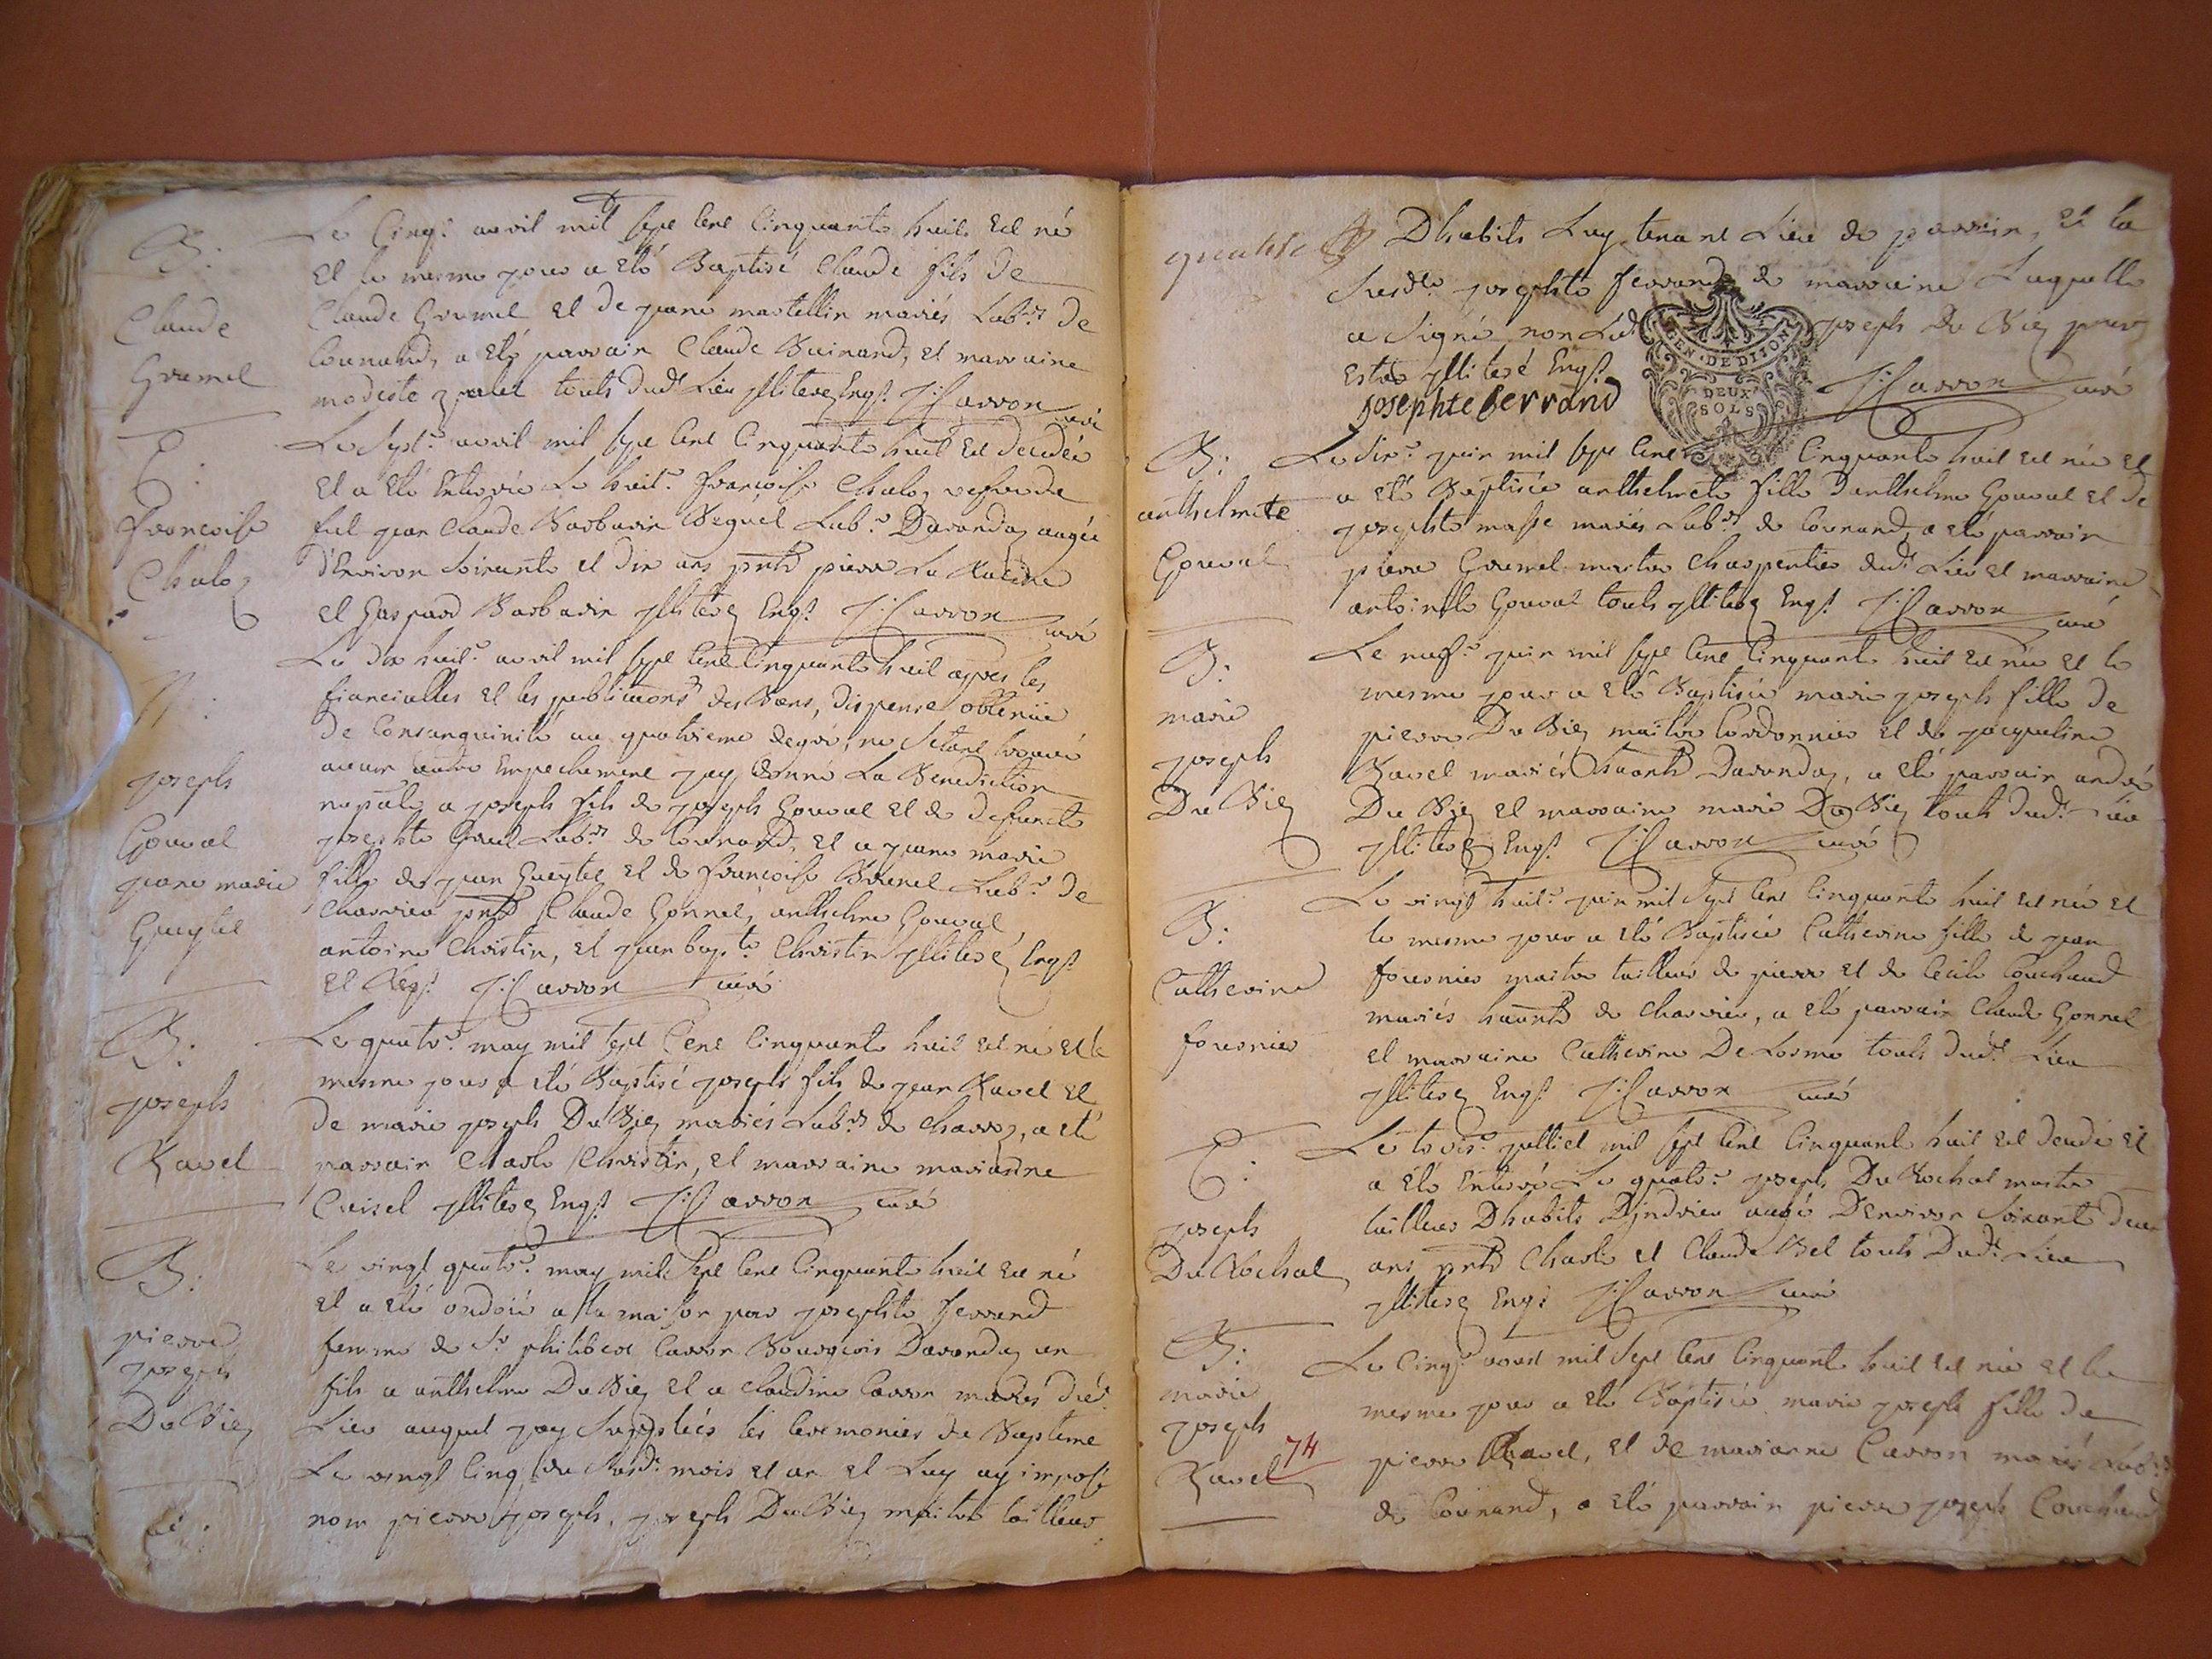 B:
Claude
Gremel
Le Cinq.e avril mil sept Cent Cinquante huit Est né
Et le mesme jour a Eté Baptisé Claude fils de
Claude Gremel Et de jeane martellin mariés Lab.rs de
Cournand, a Eté parrain Claude Buinand, et marraine
modeste touts dud.t Lieu jlliterez Enq.s J: Carron curé
françoise
Chaley
Le Sept.e avril mil sept Cent Cinquante huit Est decedée
Et a Eté Enterrée Le huit.e françoise Chaley vefve de
feut jean Claude Barbarin Lab.r Darandaz aagée
d'Environ soixante et dix ans pnts pierre La Racine
et Gaspard Barbarin jlliterez Enq.s J: Carron curé
M:
joseph
Gouval
jeane marie
Le dix huit.e avril mil sept Cent Cinquante huit apres les
fiancialles et les publications des Bans, dispense obtenüe
de Consanguinité au quatrieme degré, ne s'etant trouvé
aucun autre Empechement jay donné La Benediction
nuptiale a joseph fils de joseph Gouval et de defuncte
josephte Lab.rs de Cournand, et a jeane marie
fille de jean et de françoise Lab.r de
Charvieu pnts Claude Gonnel, anthelme Gouval
antoine Christin, et jean bap.te Christin jlliterez Enq.s
et Req.s J: Carron curé
B:
joseph
Ravel
Le quatr.e may mil sept Cent Cinquante huit Est né et le
mesme jour a Eté Baptisé joseph fils de jean Ravel Et
de marie joseph Du Biez mariés Lab.rs de Charvey, a Eté
parrain Charle Christin, et marraine marianne
Cuisel jlliterez Enq.s J: Carron curé
B:
pierre
joseph
Du Biez
Le vingt quatr.e may mil Sept Cent Cinquante huit Est né
Et a Eté ondoié a la maison par josephte ferrand
femme de S.r philibert Carron Bourgeois Darandaz un
fils a anthelme Du Biez et a Claudine Carron mariés dud.t
Lieu auquel jay Suppleés les Ceremonies du Bapteme
Le vingt Cinq du Susd.t mois et an et Luy ay imposé
nom pierre joseph, joseph Du Biez maitre tailleur
Dhabits Luy tenant Lieu de parrain, et la
Susd.te josephte ferrand de marraine Laquelle
a Signé non Led.t joseph Du Biez pour
Estre jlliteré Enq.s J: Carron curé
josephte ferrand
GEN · DE DIJON
DEUX
SOLS
B:
anthelmete
Gouval
Le Six.e juin mil sept Cent Cinquante huit est née et
a Eté Baptisée anthelmete fille danthelme Gouval et de
josephte masse mariés Lab.rs de Cournand, a Eté parrain
pierre Gremel maitre Charpentier dud.t Lieu et marraine
antoinete Gouval touts jlliterez Enq.s J: Carron curé
B:
marie
joseph
Du Biez
Le neuf.e juin mil sept Cent Cinquante huit Est née et le
mesme jour a Eté Baptisée marie joseph fille de
pierre Du Biez maitre Cordonnier et de jacqueline
Ravel mariés habants Darandaz, a Eté parrain andré
Du Biez et marraine marie Du Biez touts dud.t Lieu
jlliterez Enq.s J: Carron curé
B:
Catherine
fournier
Le vingt huit.e juin mil Sept Cent Cinquante huit est née et
le mesme jour a Eté Baptisée Catherine fille de jean
fournier maitre tailleur de pierre et de Cecile Couchaud
mariés habants de Charvieu, a Eté parrain Claude Gonnel
et marraine Catherine De Lorme touts dud.t Lieu
jlliterez Enq.s J: Carron curé
joseph
Du Rochat
Le trois.e julliet mil sept Cent Cinquante huit est decedé et
a Eté Enterré Le quatr.e joseph Du Rochat maitre
tailleur Dhabits Djndrieu aagé DEnviron Soixante deux
ans pnts Charle et Claude Bel touts Dud.t Lieu
jlliterez Enq.s J: Carron curé
B:
marie
joseph
Ravel 74
Le Cinq.e aoust mil Sept Cent Cinquante huit est née et le
mesme jour a Eté Baptisée marie joseph fille de
pierre Ravel, et de marianne Carron mariés Lab.rs
de Cournand, a Eté parrain pierre joseph Couchaud